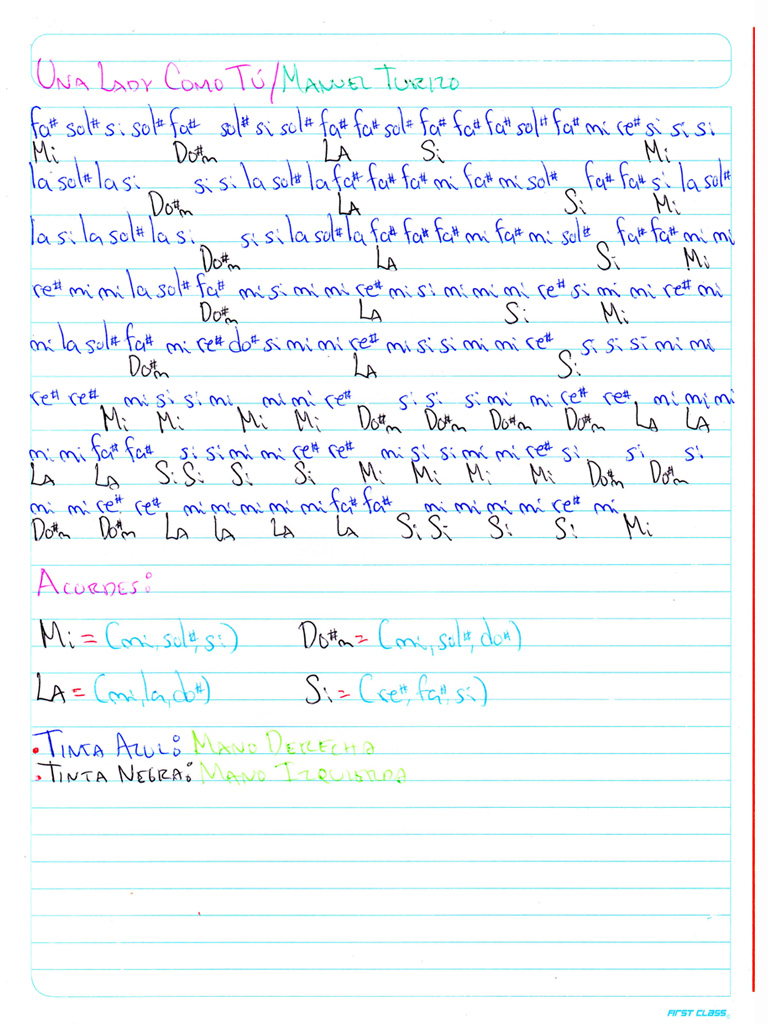 UNA LADY COMO TÚ/MANUEL TURIZO
fa# sol# si sol# fa# sol# si sol# fa# fa# sol# fa# fa# fa# sol# fa# mi re# si si si
Mi Do#m LA Si Mi
la sol# la si si si la sol# la fa# fa# fa# mi fa# mi sol# fa# fa# si la sol#
Do#m LA Si Mi
la si la sol# la si si si la sol# la fa# fa# fa# mi fa# mi sol# fa# fa# mi mi
Do#m LA Si Mi
re# mi mi la sol# fa# mi si mi mi re# mi si mi mi mi re# si mi mi re# mi
Do#m LA Si Mi
mi la sol# fa# mi re# do# si mi mi re# mi si si mi mi re# si si si mi mi
Do#m LA Si
re# re# mi si si mi mi mi re# si si si mi mi re# re# mi mi mi
Mi Mi Mi Mi Do#m Do#m Do#m Do#m LA LA
mi mi fa# fa# si si mi mi re# re# mi si si mi mi re# si si si
LA LA Si Si Si Si Mi Mi Mi Mi Do#m Do#m
mi mi re# re# mi mi mi mi mi fa# fa# mi mi mi mi re# mi
Do#m Do#m LA LA LA LA Si Si Si Si Mi
ACORDES:
Mi = (mi, sol#, si) Do#m = (mi, sol#, do#)
LA = (mi, la, do#) Si = (re#, fa#, si)
• TINTA AZUL: MANO DERECHA
• TINTA NEGRA: MANO IZQUIERDA
FIRST CLASS